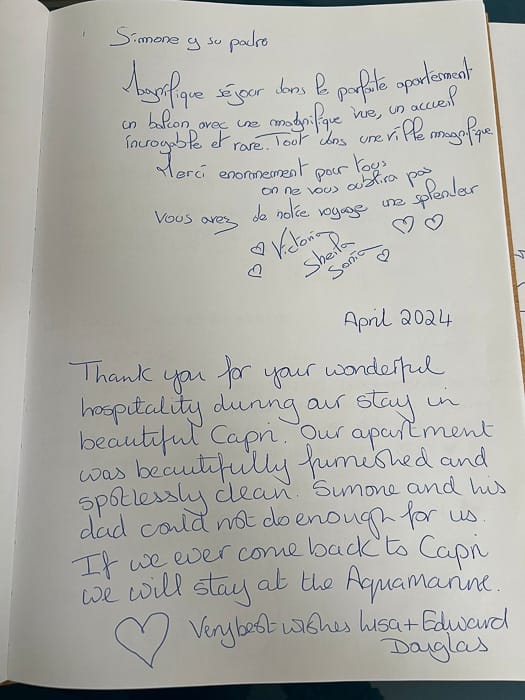 Simone y su padro
Magnifique séjour dans le parfaite apartement
un balcon avec une magnifique vue, un accueil
incroyable et rare. Tout dans une ville magnifique
Merci enormement pour tous
on ne vous oublira pas
vous avez de notre voyage une splendeur
Victoria
Sheila
Sonia
April 2024
Thank you for your wonderful
hospitality during our stay in
beautiful Capri. Our apartment
was beautifully furnished and
spotlessly clean. Simone and his
dad could not do enough for us.
If we ever come back to Capri
we will stay at the Aquamarine.
Very best wishes Lisa + Edward
Douglas